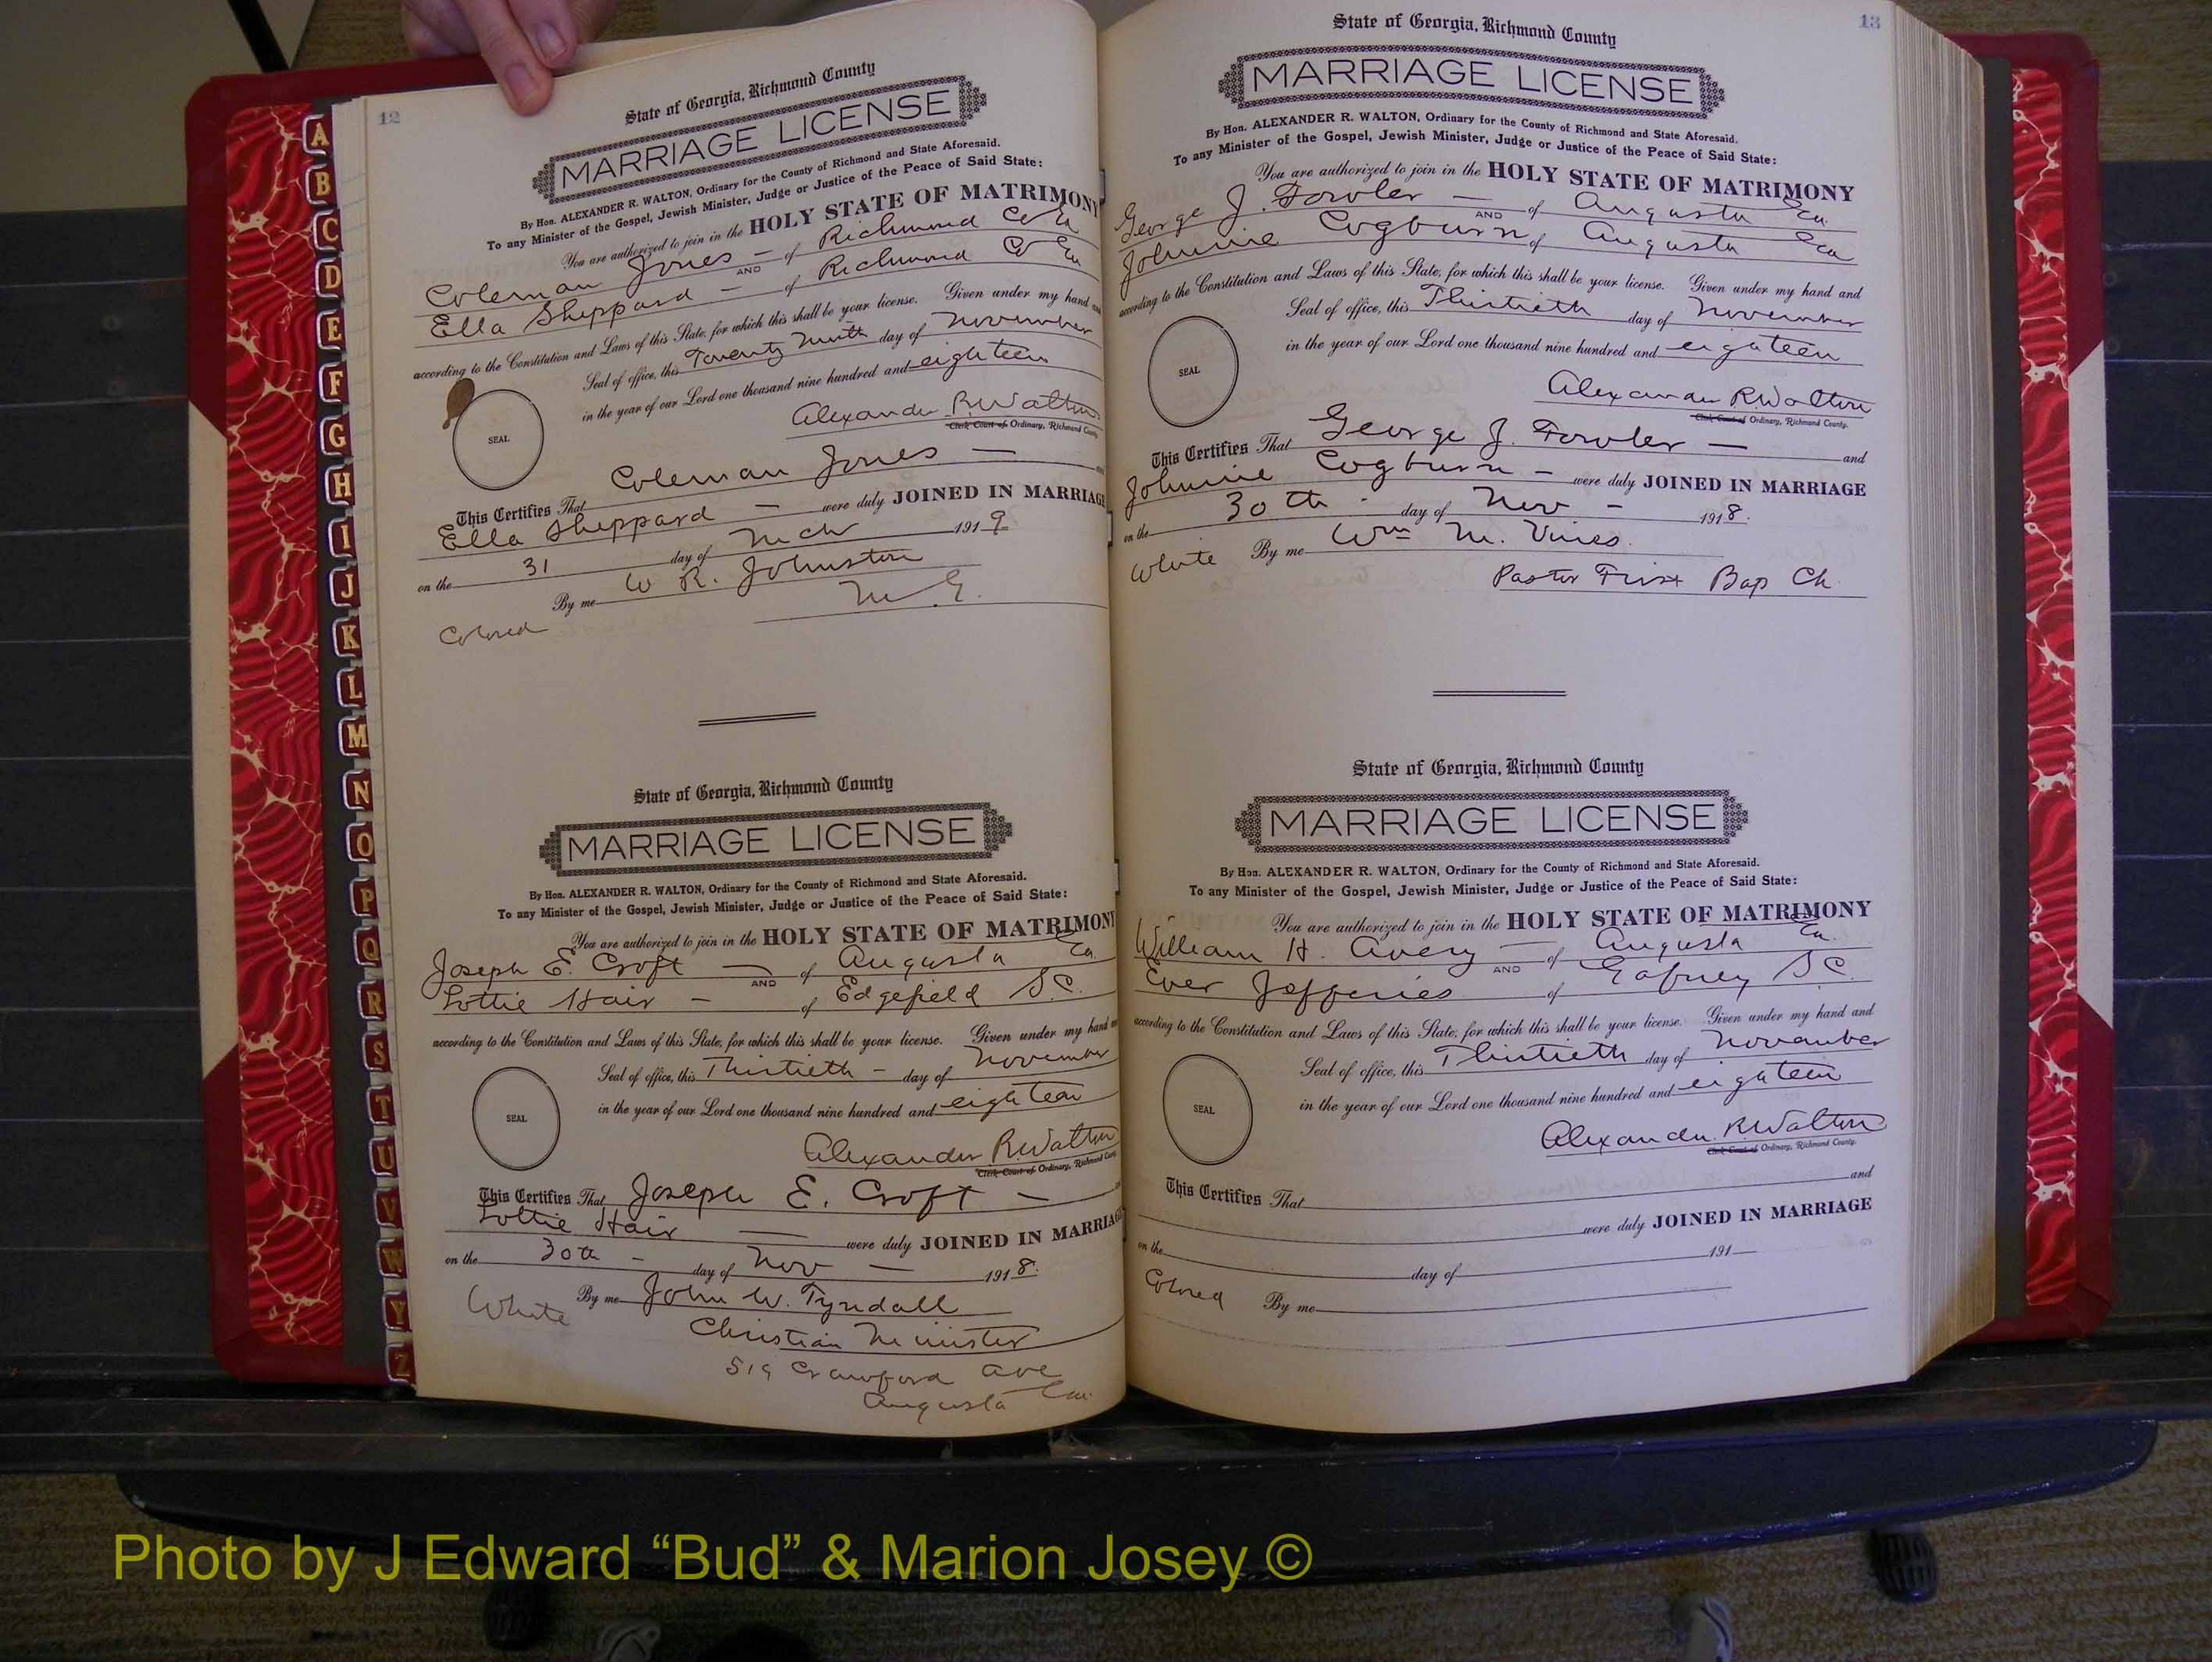 12
State of Georgia, Richmond County
MARRIAGE LICENSE
By Hon. ALEXANDER R. WALTON, Ordinary for the County of Richmond and State Aforesaid.
To any Minister of the Gospel, Jewish Minister, Judge or Justice of the Peace of Said State:
You are authorized to join in the HOLY STATE OF MATRIMONY
Coleman Jones — of Richmond Co Ga
AND
Ella Sheppard — of Richmond Co Ga
according to the Constitution and Laws of this State, for which this shall be your license. Given under my hand and
Seal of office, this Twenty Ninth day of November
in the year of our Lord one thousand nine hundred and eighteen
SEAL
Alexander R Walton
Clerk Court of Ordinary, Richmond County
This Certifies That Coleman Jones — and
Ella Sheppard — were duly JOINED IN MARRIAGE
on the 31 day of Mch 1919
By me W R. Johnston
M. G.
Colored
State of Georgia, Richmond County
MARRIAGE LICENSE
By Hon. ALEXANDER R. WALTON, Ordinary for the County of Richmond and State Aforesaid.
To any Minister of the Gospel, Jewish Minister, Judge or Justice of the Peace of Said State:
You are authorized to join in the HOLY STATE OF MATRIMONY
Joseph E. Croft — of Augusta Ga.
AND
Lottie Hair — of Edgefield S.C.
according to the Constitution and Laws of this State, for which this shall be your license. Given under my hand an
Seal of office, this Thirtieth — day of November
in the year of our Lord one thousand nine hundred and eighteen
SEAL
Alexander R Walton
Clerk Court of Ordinary, Richmond Coun
This Certifies That Joseph E. Croft — and
Lottie Hair — were duly JOINED IN MARRIAGE
on the 30th — day of Nov — 1918.
White By me John W. Tyndall
Christian Minister
519 Crawford Ave
Augusta Ga.
A
B
C
D
E
F
G
H
I
J
K
L
M
N
O
P
Q
R
S
T
U
V
W
Y
Z
13
State of Georgia, Richmond County
MARRIAGE LICENSE
By Hon. ALEXANDER R. WALTON, Ordinary for the County of Richmond and State Aforesaid.
To any Minister of the Gospel, Jewish Minister, Judge or Justice of the Peace of Said State:
You are authorized to join in the HOLY STATE OF MATRIMONY
George J. Fowler — of Augusta Ga.
AND
Johnnie Cogburn of Augusta Ga
according to the Constitution and Laws of this State, for which this shall be your license. Given under my hand and
Seal of office, this Thirtieth day of November
in the year of our Lord one thousand nine hundred and eighteen
SEAL
Alexander R Walton
Clerk Court of Ordinary, Richmond County.
This Certifies That George J. Fowler — and
Johnnie Cogburn — were duly JOINED IN MARRIAGE
on the 30th - day of Nov - 1918.
White By me Wm M. Vines.
Pastor First Bap Ch.
State of Georgia, Richmond County
MARRIAGE LICENSE
By Hon. ALEXANDER R. WALTON, Ordinary for the County of Richmond and State Aforesaid.
To any Minister of the Gospel, Jewish Minister, Judge or Justice of the Peace of Said State:
You are authorized to join in the HOLY STATE OF MATRIMONY
William H. Avery — of Augusta Ga.
AND
Ever Jefferies of Gafney S.C.
according to the Constitution and Laws of this State, for which this shall be your license. Given under my hand and
Seal of office, this Thirtieth day of November
in the year of our Lord one thousand nine hundred and eighteen
SEAL
Alexander R Walton
Clerk Court of Ordinary, Richmond County.
This Certifies That and
were duly JOINED IN MARRIAGE
on the day of 191
Colored By me
Photo by J Edward “Bud” & Marion Josey ©